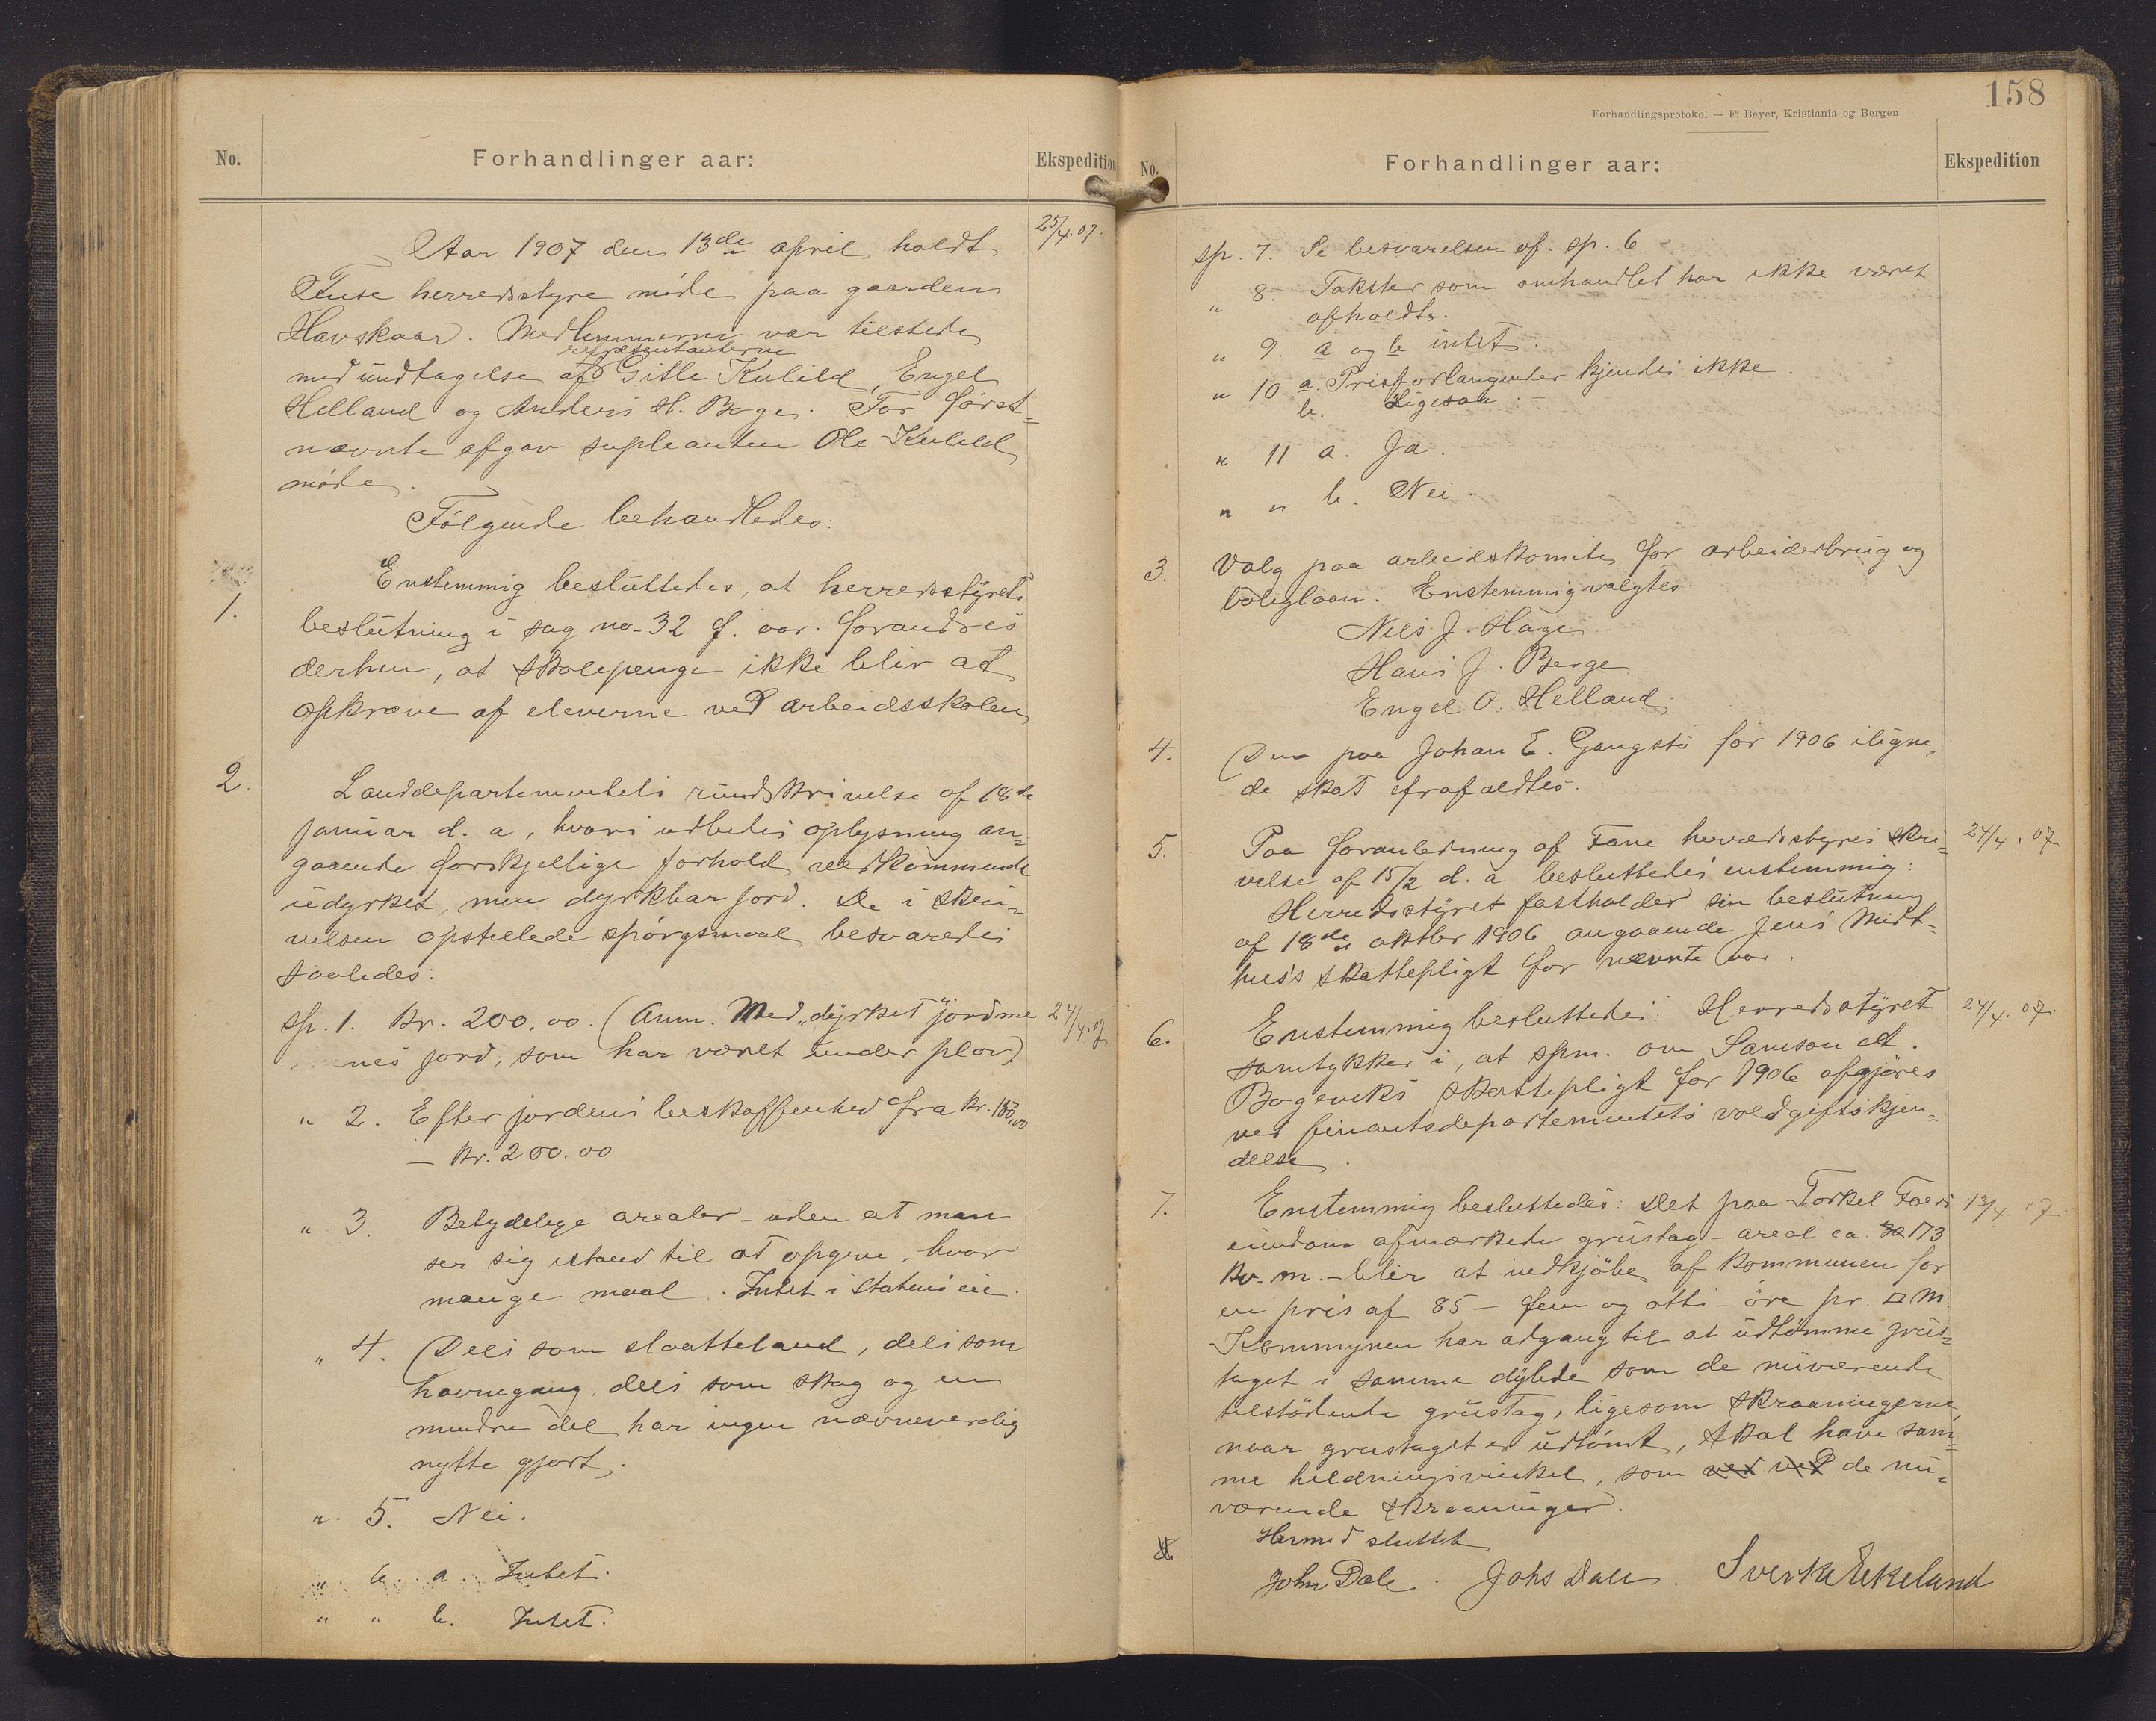 No.
Forhandlinger aar:
Ekspedition
Aar 1907 den 13de april holdt
25/4.07.
Fuse herredsstyre møde paa gaarden
Havskaar. Medlemmerne var tilstede
repræsentanterne
med undtagelse af Gitle Kulild, Engel
Helland og Anders H. Boge. For først-
nævnte afgav supleanten Ole Kulild
møde.
Følgende behandledes:
1.
Enstemmig besluttedes, at herredsstyrets
beslutning i sag no. 32 f. aar. forandres
derhen, at skolepenge ikke blir at
opkræve af eleverne ved arbeidsskolen
2.
Landdepartementets rundskrivelse af 18de
januar d. a, hvori udbedes oplysning an-
gaaende forskjellige forhold vedkommende
udyrket, men dyrkbar jord. De i skri-
velsen opstillede spørgsmaal besvaredes
saaledes:
sp. 1. Kr. 200.00. (Anm. Med „dyrket" jord me
24/4.07
nes jord, som har været under plov)
" 2. Efter jordens beskaffenhed fra Kr. 100,00
– Kr. 200.00
" 3. Betydelige arealer – uden at man
ser sig istand til at opgive, hvor
mange maal. Intet i statens eie.
" 4. Dels som slaatteland, dels som
havnegang, dels som skog og en
mindre del har ingen nævneverdig
nytte gjort.
" 5. Nei.
" 6. a. Intet.
" " b. Intet.
158
Forhandlingsprotokol — F. Beyer, Kristiania og Bergen
No.
Forhandlinger aar:
Ekspedition
sp. 7. Se besvarelsen af. sp. 6
" 8. Takster som omhandlet har ikke været
afholdt.
" 9. a og b intet.
" 10 a. Prisforlangender kjendes ikke.
b. Ligesaa.
" 11 a. Ja.
" " b. Nei.
3. Valg paa arbeidskomite for arbeiderbrug og
boliglaan. Enstemmig valgtes
Nils J. Hage
Hans J. Berge
Engel O. Helland.
4. Den paa Johan E. Gangstø for 1906 iligne,
de skat efrafaldtes.
5. Paa foranledning af Fane herredsstyres skri-
24/4.07
velse af 15/2 d. a besluttedes enstemmig:
Herredsstyret fastholder sin beslutning
af 18de oktbr 1906 angaaende Jens Midt-
hus's skattepligt for nævnte aar.
6. Enstemmig besluttedes: Herredsstyret
24/4.07.
samtykker i, at spm. om Samson A.
Bogeviks skattepligt for 1906 afgjøres
ved finantsdepartementets voldgiftskjen-
delse.
7. Enstemmig besluttedes: Det paa Torkel Foers
13/4.07
eiendom afmærkede grustag – areal ca. 173
Kv. m. – blir at indkjøbe af kommunen for
en pris af 85 – fem og otti – øre pr. □ M.
Kommunen har adgang til at udtømme grus-
taget i samme dybde som de nuværende
tilstødende grustag, ligesom skraaningerne,
naar grustaget er udtømt, skal have sam-
me heldningsvinkel, som ved ved de nu-
værende skraaninger.
Hermed sluttet
John Dale. Johs Dale. Sverke Eikeland